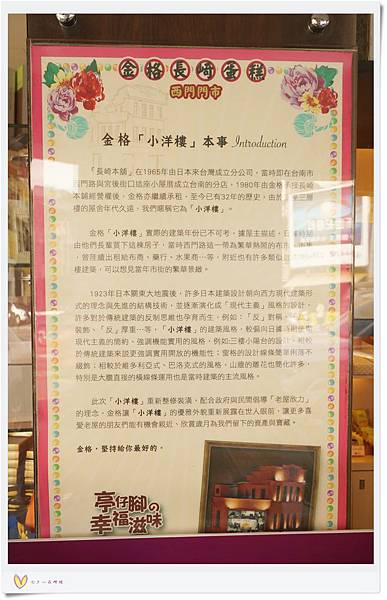 金格長崎蛋糕
西門門市
金格「小洋樓」本事 Introduction
「長崎本舖」在1965年由日本來台灣成立分公司，當時即在台南市
西門路與宮後街口這座小屋厝成立台南的分店，1980年由金格承接長崎
本舖經營權後，金格亦繼續承租，至今已有32年的歷史，由於
的屋舍年代久遠，我們暱稱它為「小洋樓」。
金格「小洋樓」實際的建築年份已不可考，據屋主描述，日據時期
由他們長輩買下這棟房子，當時西門路這一帶為繁華熱鬧的布市
曾陸續出租給布商、藥行、水果商…等，附近也有許多類似
樓建築，可以想見當年市街的繁華景緻。
1923年日本關東大地震後，許多日本建築設計朝向西方現代建築形
式的理念與先進的結構技術，並逐漸演化成「現代主義」風格的設計，
許多對於傳統建築的反制思維也孕育而生，例如：「反」對稱、「反」
裝飾、「反」厚重…等，「小洋樓」的建築風格，較偏向日據時期
現代主義的簡約、強調機能實用的風格，例如:三樓小陽台的設計，相較
於傳統建築來說更強調實用開放的機能性；窗格的設計線條簡單俐落不
綴飾；相較於維多利亞式、巴洛克式的風格，山牆的雕花也簡化許多，
特別是大膽直接的橫線條運用也是當時建築的主流風格。
此次「小洋樓」重新整修裝潢，配合政府與民間倡導「老屋欣力」
的理念，金格讓「小洋樓」的優雅外貌重新展露在世人眼前，讓更多喜
愛老屋的朋友們能有機會親近、欣賞歲月為我們留下的資產與寶藏。
金格，堅持給你最好的。
亭仔腳の
幸福滋味